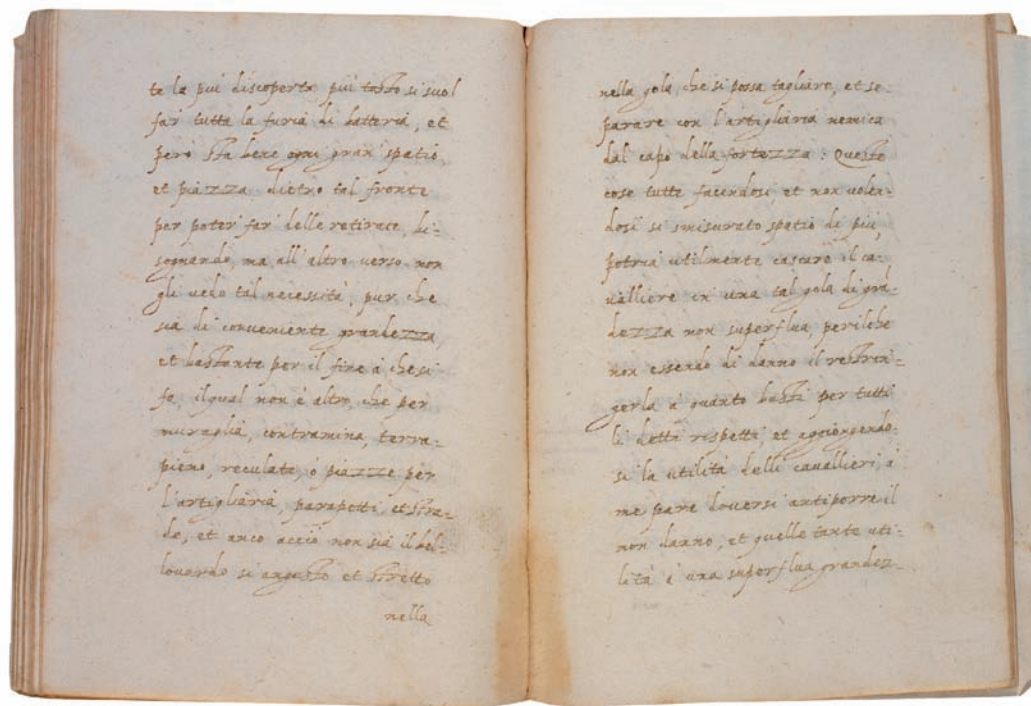 te la piu discoperta piu tosto si suol
far tutta la furia di batteria, et
però sta bene ogni gran spatio,
et piazza dietro tal fronte
per poter far delle retirate, bi=
sognando, ma all'altro verso non
gli vedo tal necessità, pur che
sia di conveniente grandezza,
et bastante per il fine à che si
fà, il qual non è altro, che per
muraglia, contramina, terra=
pieno, reculate, ò piazze per
l'artigliaria, parapetti, et stra=
de, et anco acciò non sia il bel=
louardo si angusto et stretto
nella
nella gola, che si possa tagliare, et se=
parare con l'artigliaria nemica
dal capo della fortezza: Queste
cose tutte facendosi, et non volen=
dosi si smisurato spatio di più,
potria utilmente cascare il ca=
valliere in una tal gola di gran=
dezza non superflua, perilche
non essendo di danno il restrin=
gerla à quanto basti per tutti
li detti rispetti, et aggiongendo=
si la utilità delli cavallieri, à
me pare doversi antiporre il
non danno, et quelle tante uti=
lità à una superflua grandez=